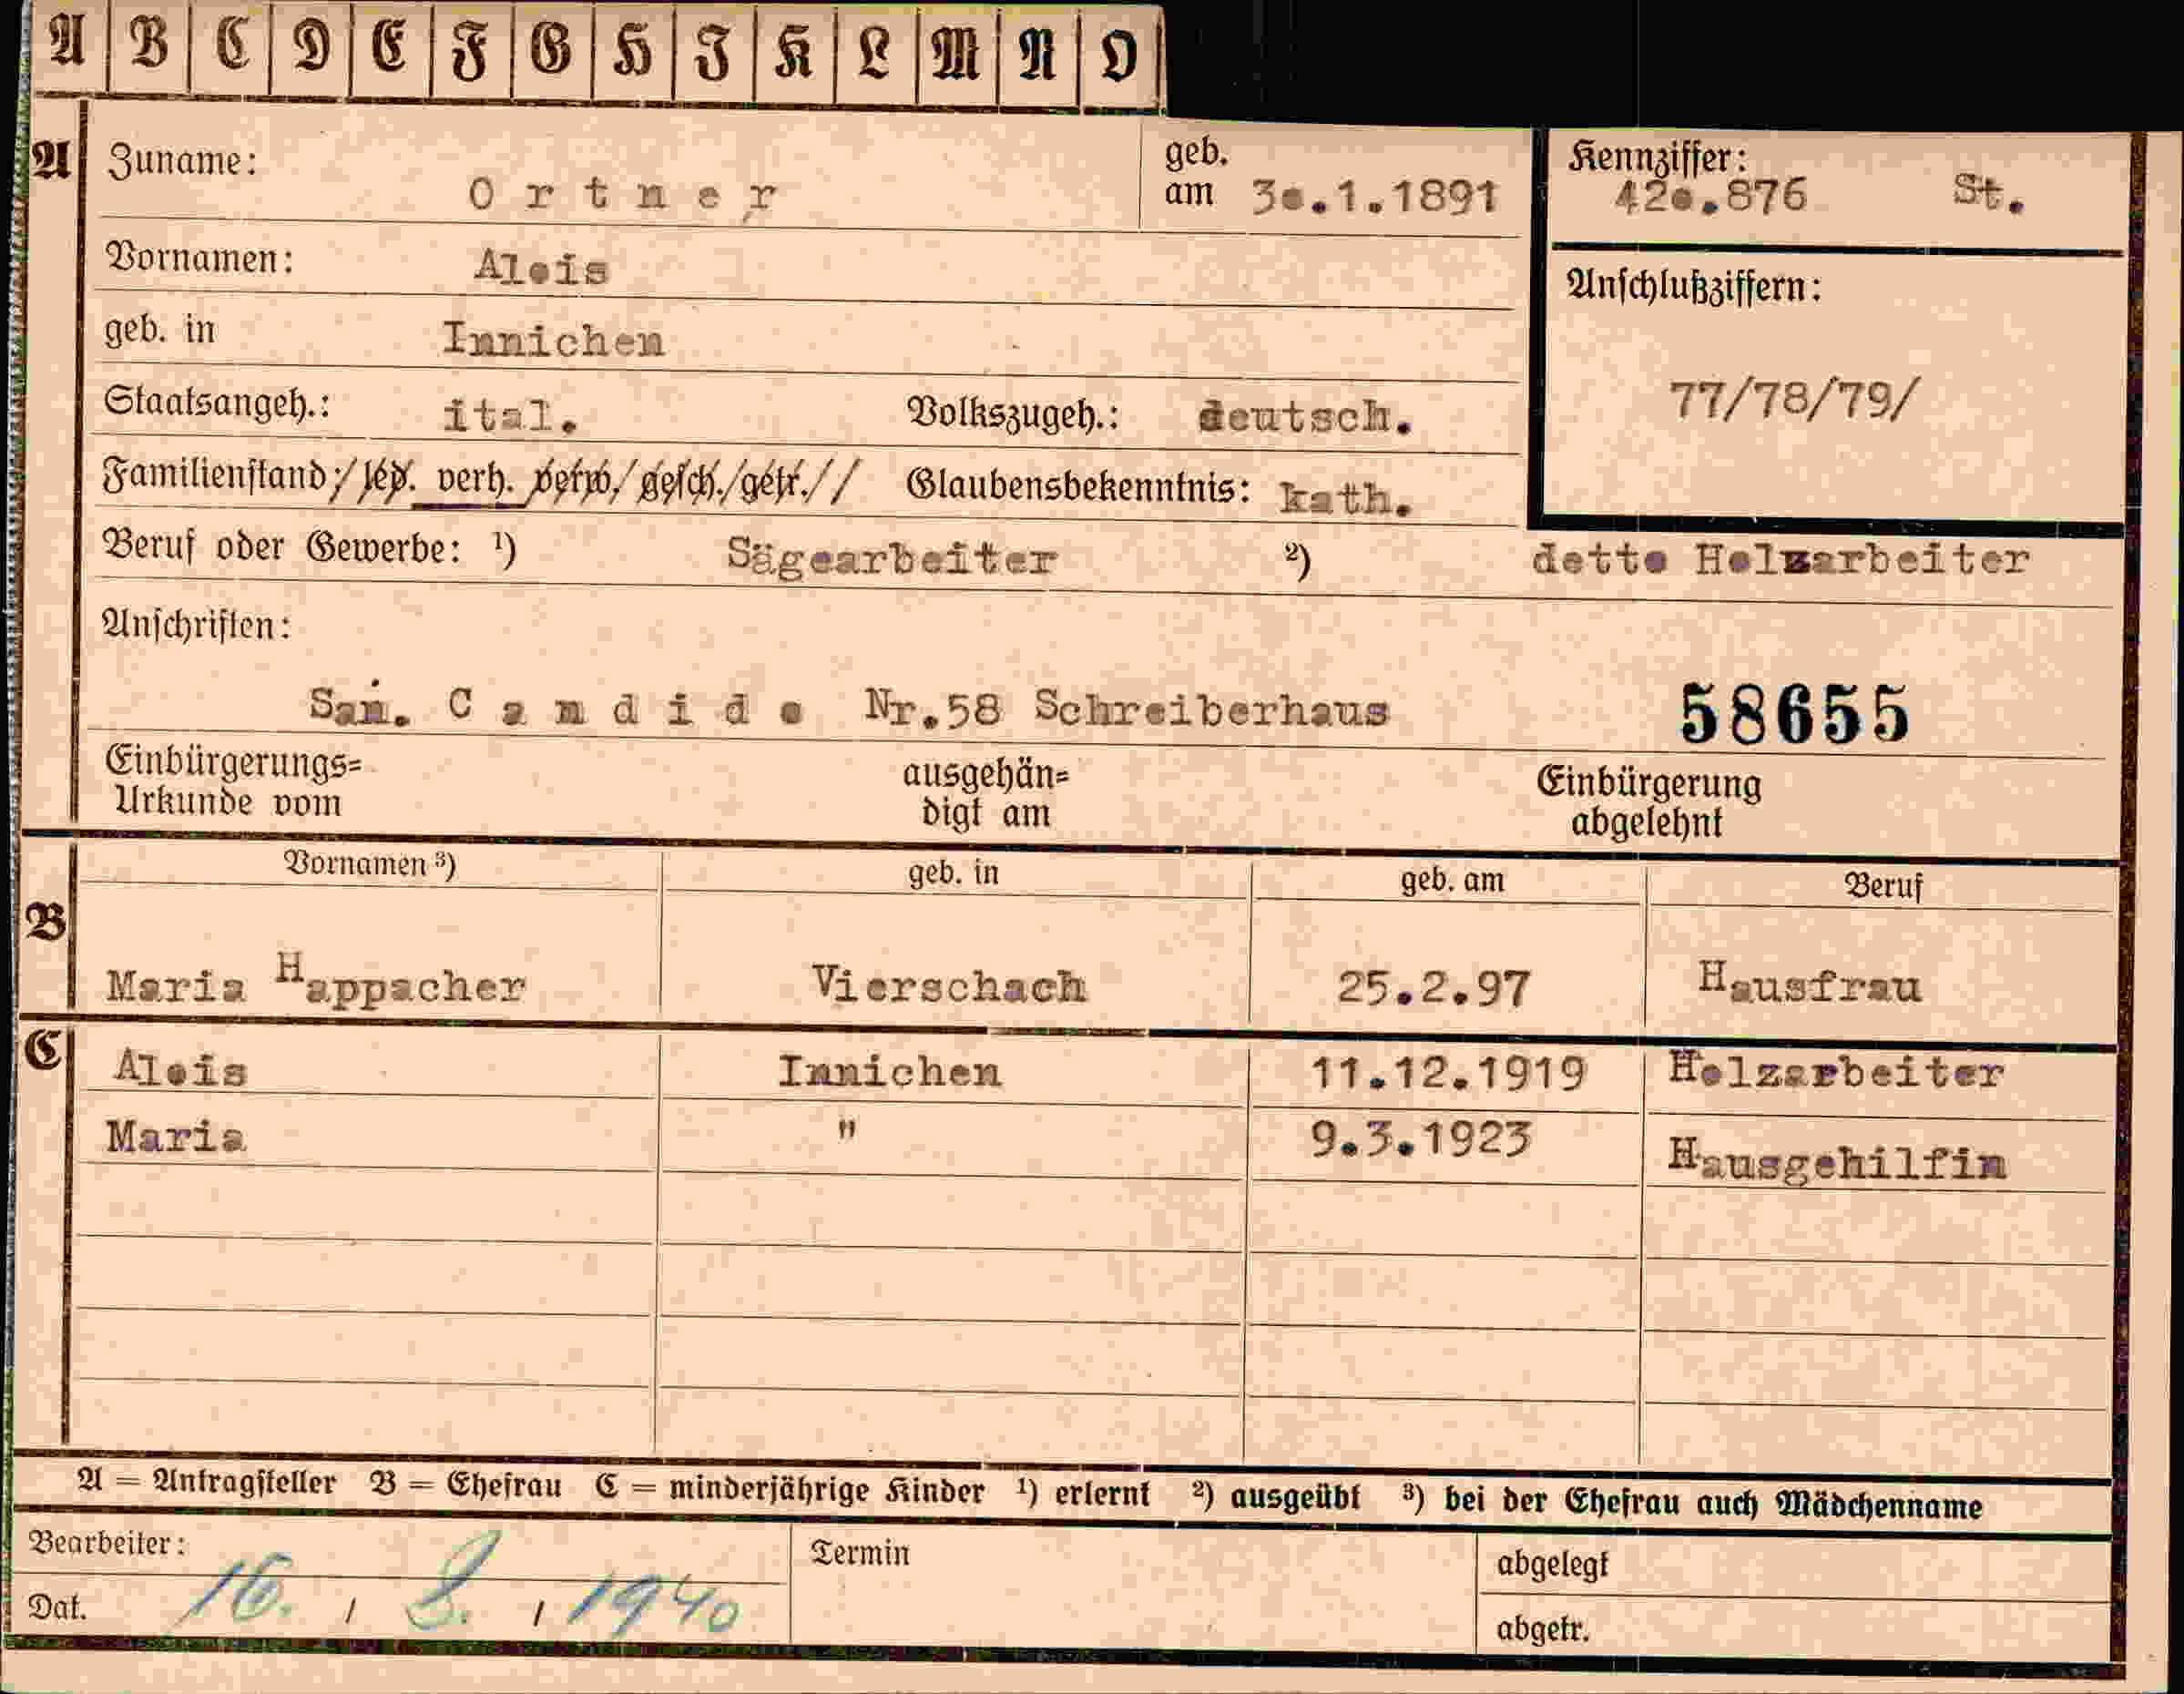 A B C D E F G H I K L M N O
A Zuname: Ortner geb. am 30.1.1891 Kennziffer: 420.876 St.
Vornamen: Alois
Anschlußziffern:
geb. in Innichen
77/78/79/
Staatsangeh.: ital. Volkszugeh.: deutsch.
Familienstand:/ led. verh. verw./gesch./getr.// Glaubensbekenntnis: kath.
Beruf oder Gewerbe: ¹) Sägearbeiter ²) detto Holzarbeiter
Anschriften:
San. Candido Nr.58 Schreiberhaus 58655
Einbürgerungs= ausgehän= Einbürgerung
Urkunde vom digt am abgelehnt
Vornamen ³) geb. in geb. am Beruf
B Maria Happacher Vierschach 25.2.97 Hausfrau
C Alois Innichen 11.12.1919 Holzarbeiter
Maria " 9.3.1923 Hausgehilfin
A = Antragsteller B = Ehefrau C = minderjährige Kinder ¹) erlernt ²) ausgeübt ³) bei der Ehefrau auch Mädchenname
Bearbeiter: Termin abgelegt
Dat. 16. / 8. / 1940 abgetr.